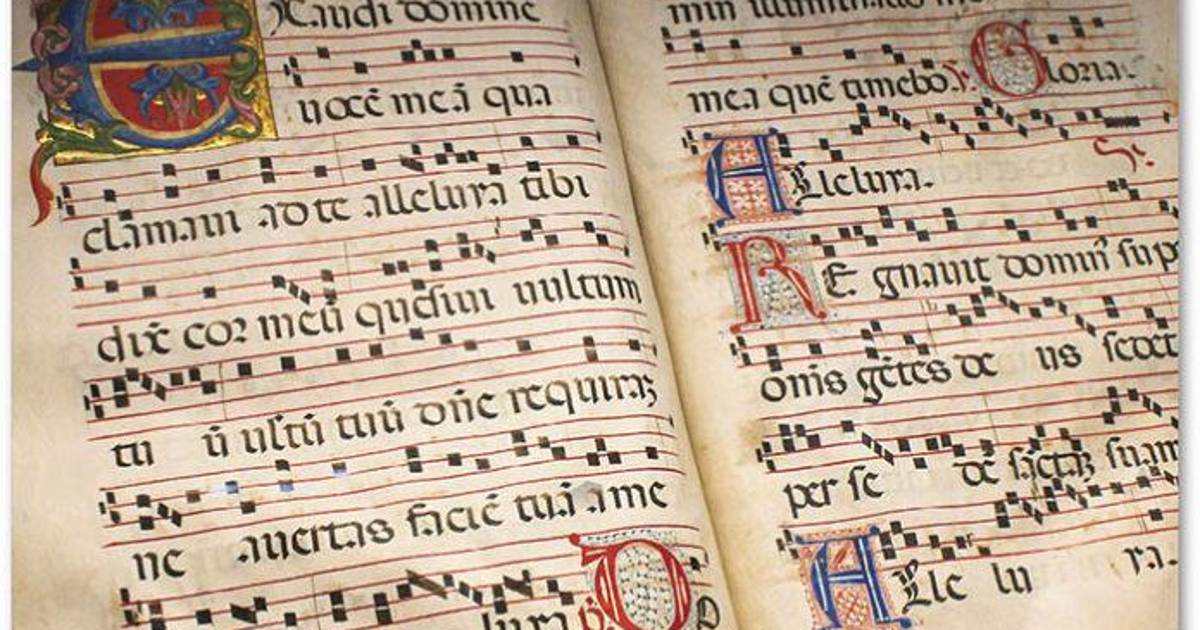 EXaudi domine
uocē meā qua
clamaui ad te alleluya tibi
dix̄ cor meū quesiui uultum
tu ū ultū tuū dn̄e requirā
ne auertas faciē tuā a me
luya ℣ D
mea quē timebo ℣ Gloria.
ALleluya.
REgnauit domin̄ sup
om̄s gētes de us sedet
per se dē sāctā suam
ALle lu ya.